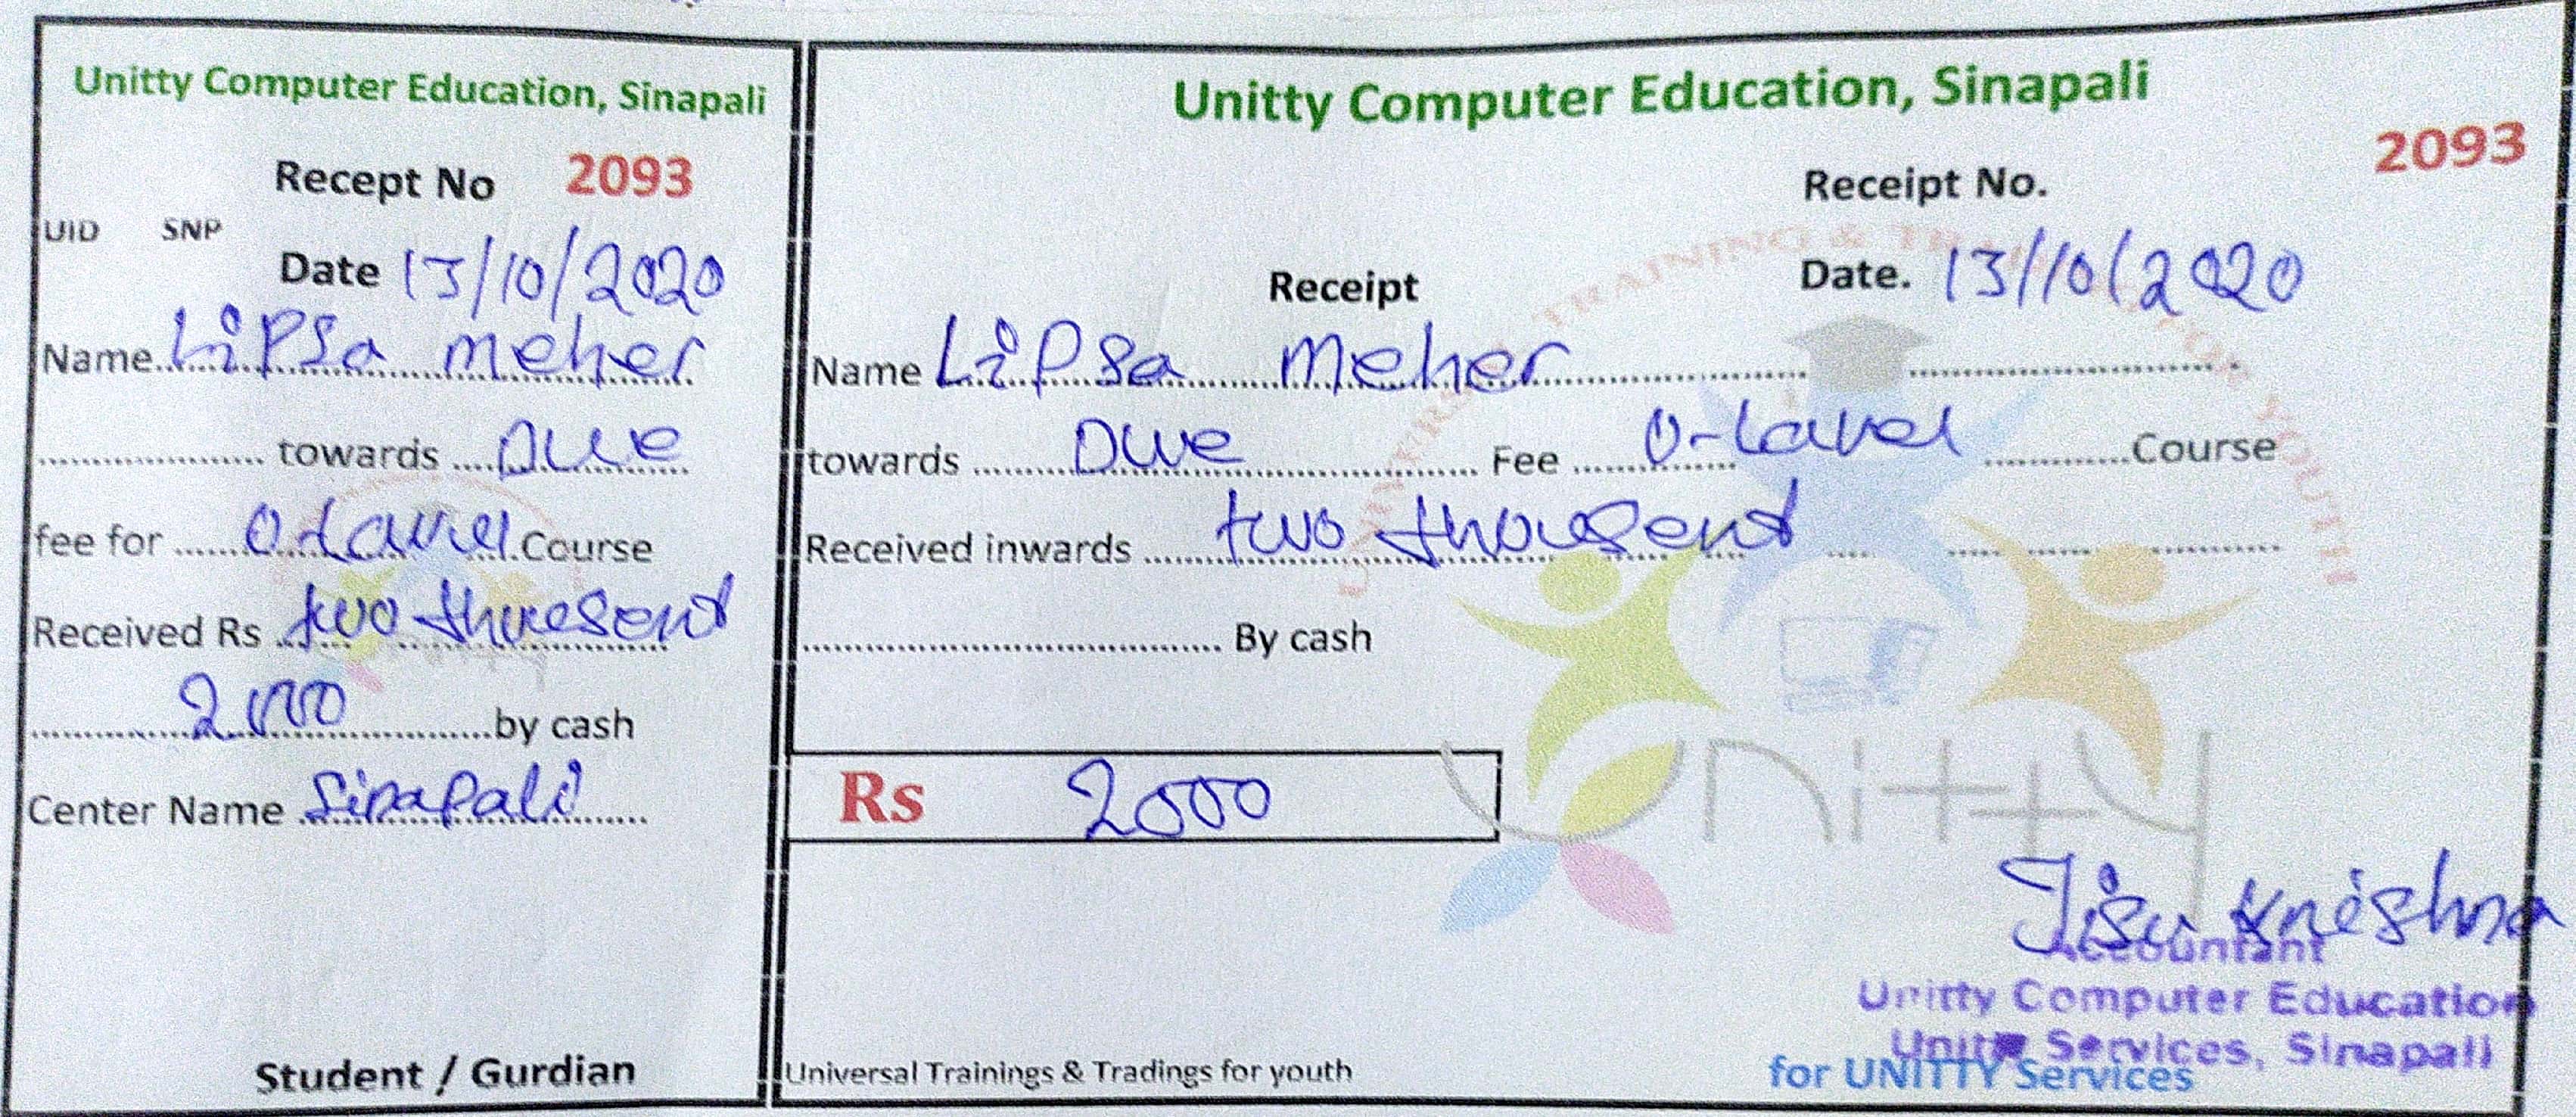 Unitty Computer Education, Sinapali
Recept No 2093
UID SNP
Date 13/10/2020
Name Lipsa meher
towards Due
fee for O-Lavel Course
Received Rs two
2000 by cash
Center Name Sinapali
Student / Gurdian
Unitty Computer Education, Sinapali
2093
Receipt No.
Receipt
Date. 13/10/2020
Name Lipsa Meher
towards Due Fee O-Lavel Course
Received inwards two thousent
By cash
Rs 2000
Unitty
Jisu Krishna
Accountant
Unitty Computer Education
Unitty Services, Sinapali
Universal Trainings & Tradings for youth
for UNITTY Services